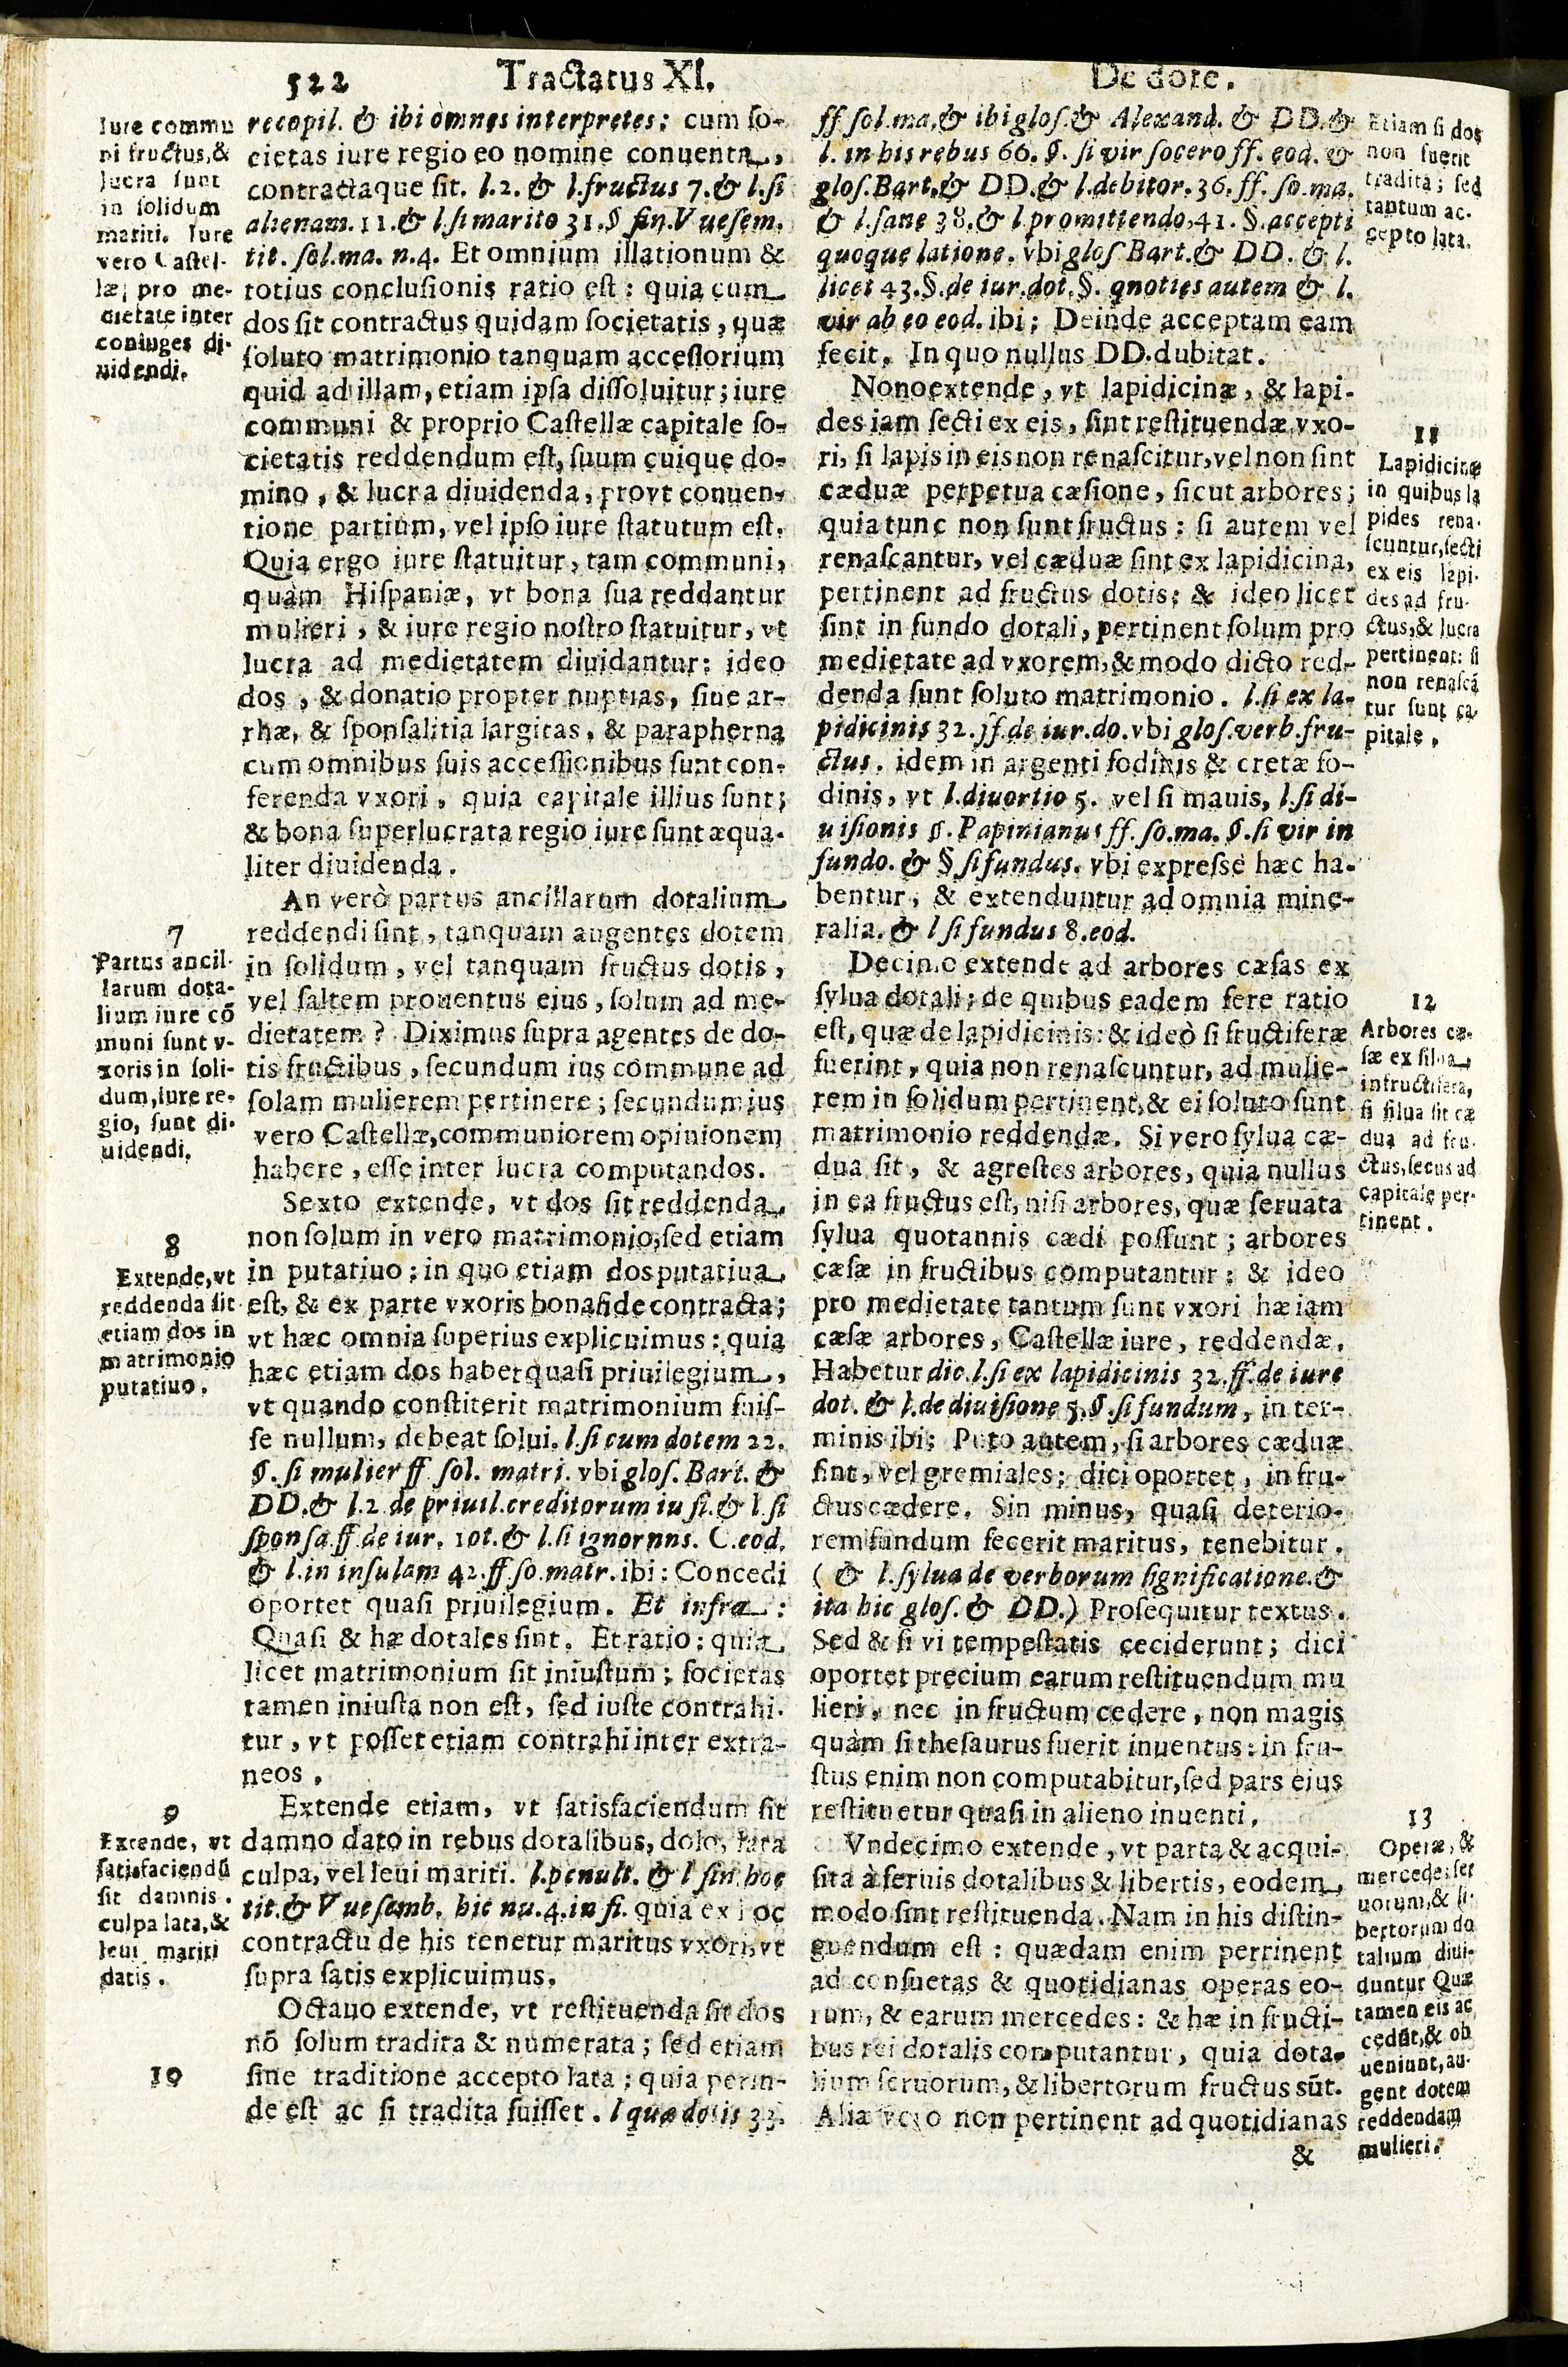 522 Tractatus XI. De dote.
Iure commu
ni fructus, &
lucra sunt
in solidum
mariti. Iure
vero Castel-
læ, pro me-
dietate inter
coniuges di-
uidendi.
recopil. & ibi omnes interpretes: cum so-
cietas iure regio eo nomine conuenta,
contractaque sit. l.2. & l.fructus 7. & l.si
alienam. 11. & l.si marito 31.§ fin. Vuesem.
tit. sol.ma. n.4. Et omnium illationum &
totius conclusionis ratio est: quia cum
dos sit contractus quidam societatis, quæ
soluto matrimonio tanquam accessorium
quid ad illam, etiam ipsa dissoluitur; iure
communi & proprio Castellæ capitale so-
cietatis reddendum est, suum cuique do-
mino, & lucra diuidenda, provt conuen-
tione partium, vel ipso iure statutum est.
Quia ergo iure statuitur, tam communi,
quàm Hispaniæ, vt bona sua reddantur
mulieri, & iure regio nostro statuitur, vt
lucra ad medietatem diuidantur: ideo
dos, & donatio propter nuptias, siue ar-
rhæ, & sponsalitia largitas, & parapherna
cum omnibus suis accessionibus sunt con-
ferenda vxori, quia capitale illius sunt;
& bona superlucrata regio iure sunt æqua-
liter diuidenda.
7
Partus ancil-
larum dota-
lium iure cō
muni sunt v-
xoris in soli-
dum, iure re-
gio, sunt di-
uidendi.
An verò partus ancillarum dotalium
reddendi sint, tanquam augentes dotem
in solidum, vel tanquam fructus dotis,
vel saltem prouentus eius, solum ad me-
dietatem? Diximus supra agentes de do-
tis fructibus, secundum ius commune ad
solam mulierem pertinere; secundum ius
vero Castellæ, communiorem opinionem
habere, esse inter lucra computandos.
8
Extende, vt
reddenda sit
etiam dos in
matrimonio
putatiuo.
Sexto extende, vt dos sit reddenda,
non solum in vero matrimonio, sed etiam
in putatiuo; in quo etiam dos putatiua
est, & ex parte vxoris bona fide contracta;
vt hæc omnia superius explicuimus: quia
hæc etiam dos habet quasi priuilegium,
vt quando constiterit matrimonium fuis-
se nullum, debeat solui. l.si cum dotem 22.
§. si mulier ff sol. matri. vbi glos. Bart. &
DD. & l.2 de priuil.creditorum iu fi. & l.si
sponsa ff de iur. 10t. & l.si ignornns. C.eod.
& l.in insulam 42.ff so.matr. ibi: Concedi
oportet quasi priuilegium. Et infra:
Quasi & hæ dotales sint. Et ratio: quia
licet matrimonium sit iniustum; societas
tamen iniusta non est, sed iuste contrahi-
tur, vt posset etiam contrahi inter extra-
neos.
9
Extende, vt
satisfaciendū
sit damnis.
culpa lata, &
leui mariti
datis.
Extende etiam, vt satisfaciendum sit
damno dato in rebus dotalibus, dolo, lata
culpa, vel leui mariti. l.penult. & l fin. hoc
tit. & Vuesemb. hic nu.4.in fi. quia ex hoc
contractu de his tenetur maritus vxori, vt
supra satis explicuimus.
10
Octauo extende, vt restituenda sit dos
nō solum tradita & numerata; sed etiam
sine traditione accepto lata; quia perin-
de est ac si tradita fuisset. l quæ dotis 33.
ff sol.ma. & ibi glos. & Alexand. & DD. &
l. in his rebus 66. §. si vir socero ff. eod. &
glos. Bart. & DD. & l.debitor. 36. ff. so.ma.
& l.sane 38. & l promittendo, 41. §. accepti
quoque latione. vbi glos Bart. & DD. & l.
licet 43.§.de iur.dot.§. qnoties autem & l.
vir ab eo eod. ibi; Deinde acceptam eam
fecit. In quo nullus DD. dubitat.
Etiam si dos
non fuerit
tradita; sed
tantum ac-
cepto lata.
Nono extende, vt lapidicinæ, & lapi-
des iam secti ex eis, sint restituendæ vxo-
ri, si lapis in eis non renascitur, vel non sint
cæduæ perpetua cæsione, sicut arbores;
quia tunc non sunt fructus: si autem vel
renascantur, vel cæduæ sint ex lapidicina,
pertinent ad fructus dotis; & ideo licet
sint in fundo dotali, pertinent solum pro
medietate ad vxorem, & modo dicto red-
denda sunt soluto matrimonio. l.si ex la-
pidicinis 32. ff.de iur.do. vbi glos.verb.fru-
ctus. idem in argenti fodinis & cretæ fo-
dinis, vt l.diuortio 5. vel si mauis, l.si di-
uisionis §. Papinianus ff. so.ma. §.si vir in
fundo. & § si fundus. vbi expresse hæc ha-
bentur, & extenduntur ad omnia mine-
ralia. & l si fundus 8.eod.
11
Lapidicinæ
in quibus la
pides rena-
scuntur, secti
ex eis lapi-
des ad fru-
ctus, & lucra
pertinent: si
non renascā
tur sunt ca-
pitale.
Decimo extende ad arbores cæsas ex
sylua dotali; de quibus eadem fere ratio
est, quæ de lapidicinis: & ideò si fructiferæ
fuerint, quia non renascuntur, ad mulie-
rem in solidum pertinent, & ei soluto sunt
matrimonio reddendæ. Si vero sylua cæ-
dua sit, & agrestes arbores, quia nullus
in ea fructus est, nisi arbores, quæ seruata
sylua quotannis cædi possunt; arbores
cæsæ in fructibus computantur: & ideo
pro medietate tantum sunt vxori hæ iam
cæsæ arbores, Castellæ iure, reddendæ.
Habetur dic.l.si ex lapidicinis 32.ff.de iure
dot. & l.de diuisione 5.§.si fundum, in ter-
minis ibi: Puto autem, si arbores cæduæ
sint, vel gremiales; dici oportet, in fru-
ctus cædere. Sin minus, quasi deterio-
rem fundum fecerit maritus, tenebitur.
( & l.sylua de verborum significatione. &
ita hic glos. & DD.) Prosequitur textus.
Sed & si vi tempestatis ceciderunt; dici
oportet precium earum restituendum mu
lieri, nec in fructum cedere, non magis
quàm si thesaurus fuerit inuentus: in fru-
stus enim non computabitur, sed pars eius
restituetur quasi in alieno inuenti.
12
Arbores cæ-
sæ ex silua
infructifera,
si silua sit cæ
dua ad fru-
ctus, secus ad
capitale per-
tinent.
Vndecimo extende, vt parta & acqui-
sita à seruis dotalibus & libertis, eodem
modo sint restituenda. Nam in his distin-
guendum est: quædam enim pertinent
ad consuetas & quotidianas operas eo-
rum, & earum mercedes: & hæ in fructi-
bus rei dotalis computantur, quia dota-
lium seruorum, & libertorum fructus sūt.
Aliæ vero non pertinent ad quotidianas
&
13
Operæ, &
mercedes ser
uorum, & li-
bertorum do
talium diui-
duntur Quæ
tamen eis ac
cedūt, & ob
ueniunt, au-
gent dotem
reddendam
mulieri.